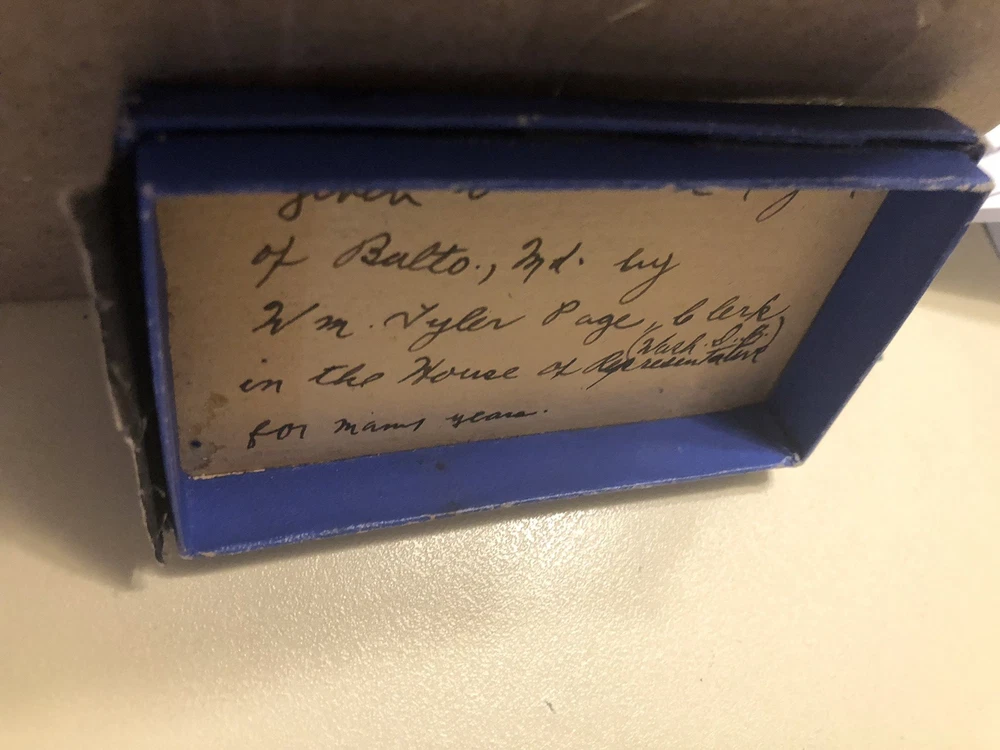 given
of Balto., Md. by
Wm. Tyler Page, Clerk
(Wash. D.C.)
in the House of Representative
for many years.